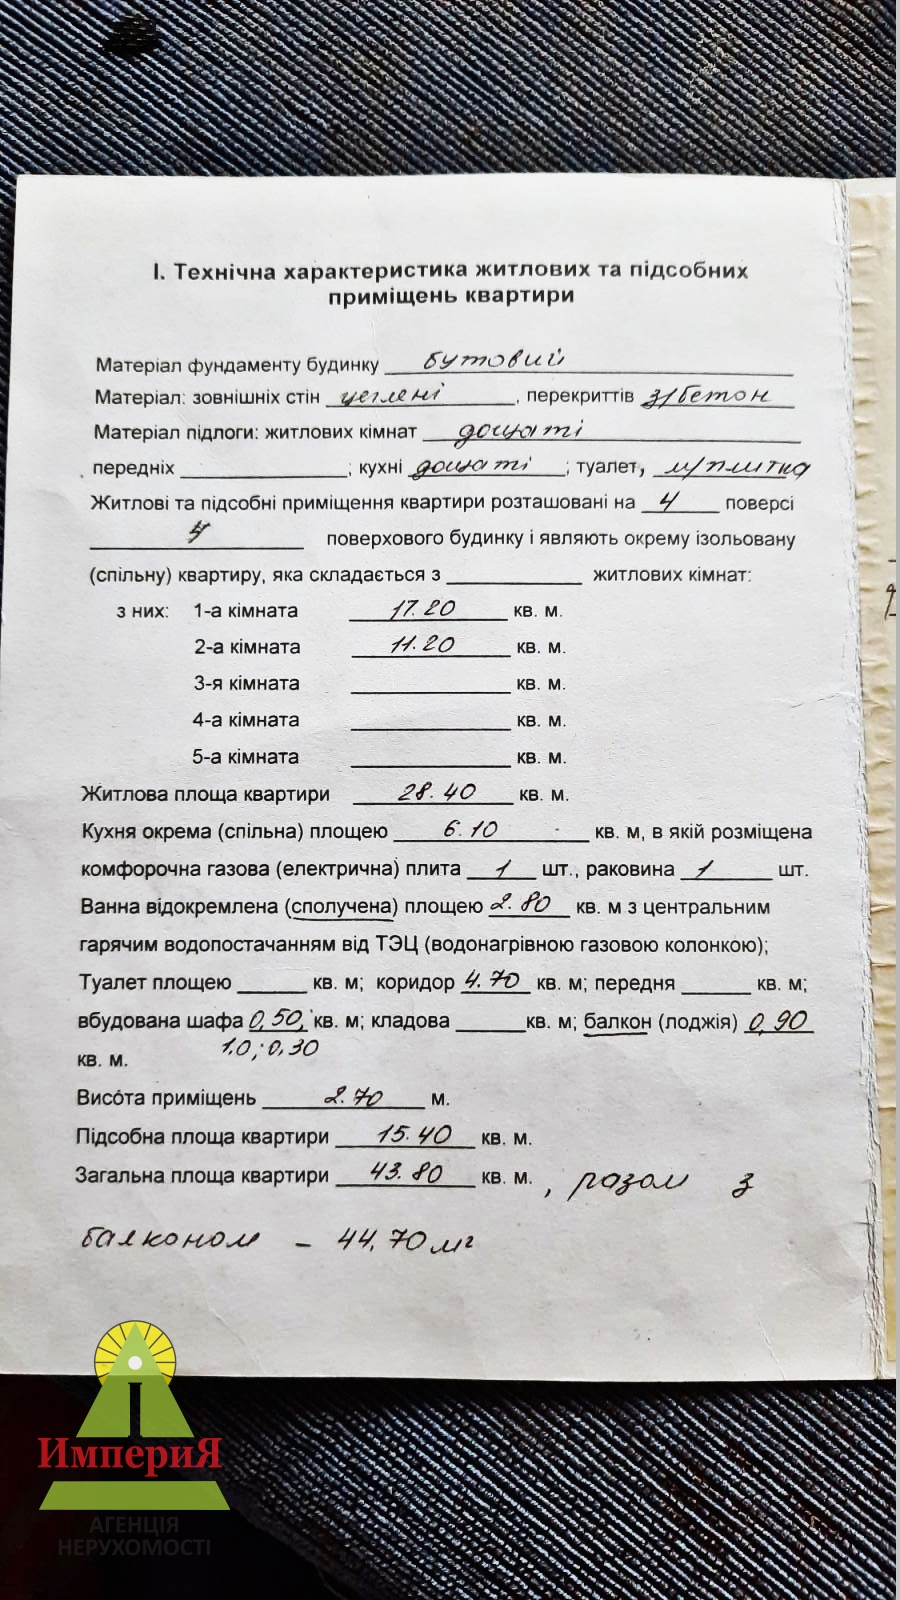 І. Технічна характеристика житлових та підсобних
приміщень квартири
Матеріал фундаменту будинку бутовий
Матеріал: зовнішніх стін цегляні, перекриттів з/бетон
Матеріал підлоги: житлових кімнат дощаті
передніх ____; кухні дощаті; туалет, м/плитка
Житлові та підсобні приміщення квартири розташовані на 4 поверсі
____ поверхового будинку і являють окрему ізольовану
(спільну) квартиру, яка складається з ____ житлових кімнат:
з них: 1-а кімната 17.20 кв. м.
2-а кімната 11.20 кв. м.
3-я кімната ____ кв. м.
4-а кімната ____ кв. м.
5-а кімната ____ кв. м.
Житлова площа квартири 28.40 кв. м.
Кухня окрема (спільна) площею 6.10 кв. м, в якій розміщена
комфорочна газова (електрична) плита 1 шт., раковина 1 шт.
Ванна відокремлена (сполучена) площею 2.80 кв. м з центральним
гарячим водопостачанням від ТЭЦ (водонагрівною газовою колонкою);
Туалет площею ____ кв. м; коридор 4.70 кв. м; передня ____ кв. м;
вбудована шафа 0,50, кв. м; кладова ____ кв. м; балкон (лоджія) 0,90
кв. м. 1.0; 0,30
Висота приміщень 2.70 м.
Підсобна площа квартири 15.40 кв. м.
Загальна площа квартири 43.80 кв. м., разом з
балконом – 44,70 м2
ИмпериЯ
АГЕНЦІЯ
НЕРУХОМОСТІ